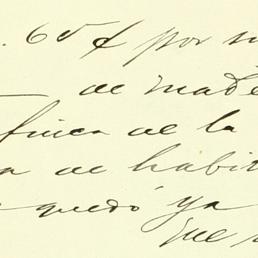 65 ¢ por
de made
finca de la
de habit
quedó ya
que